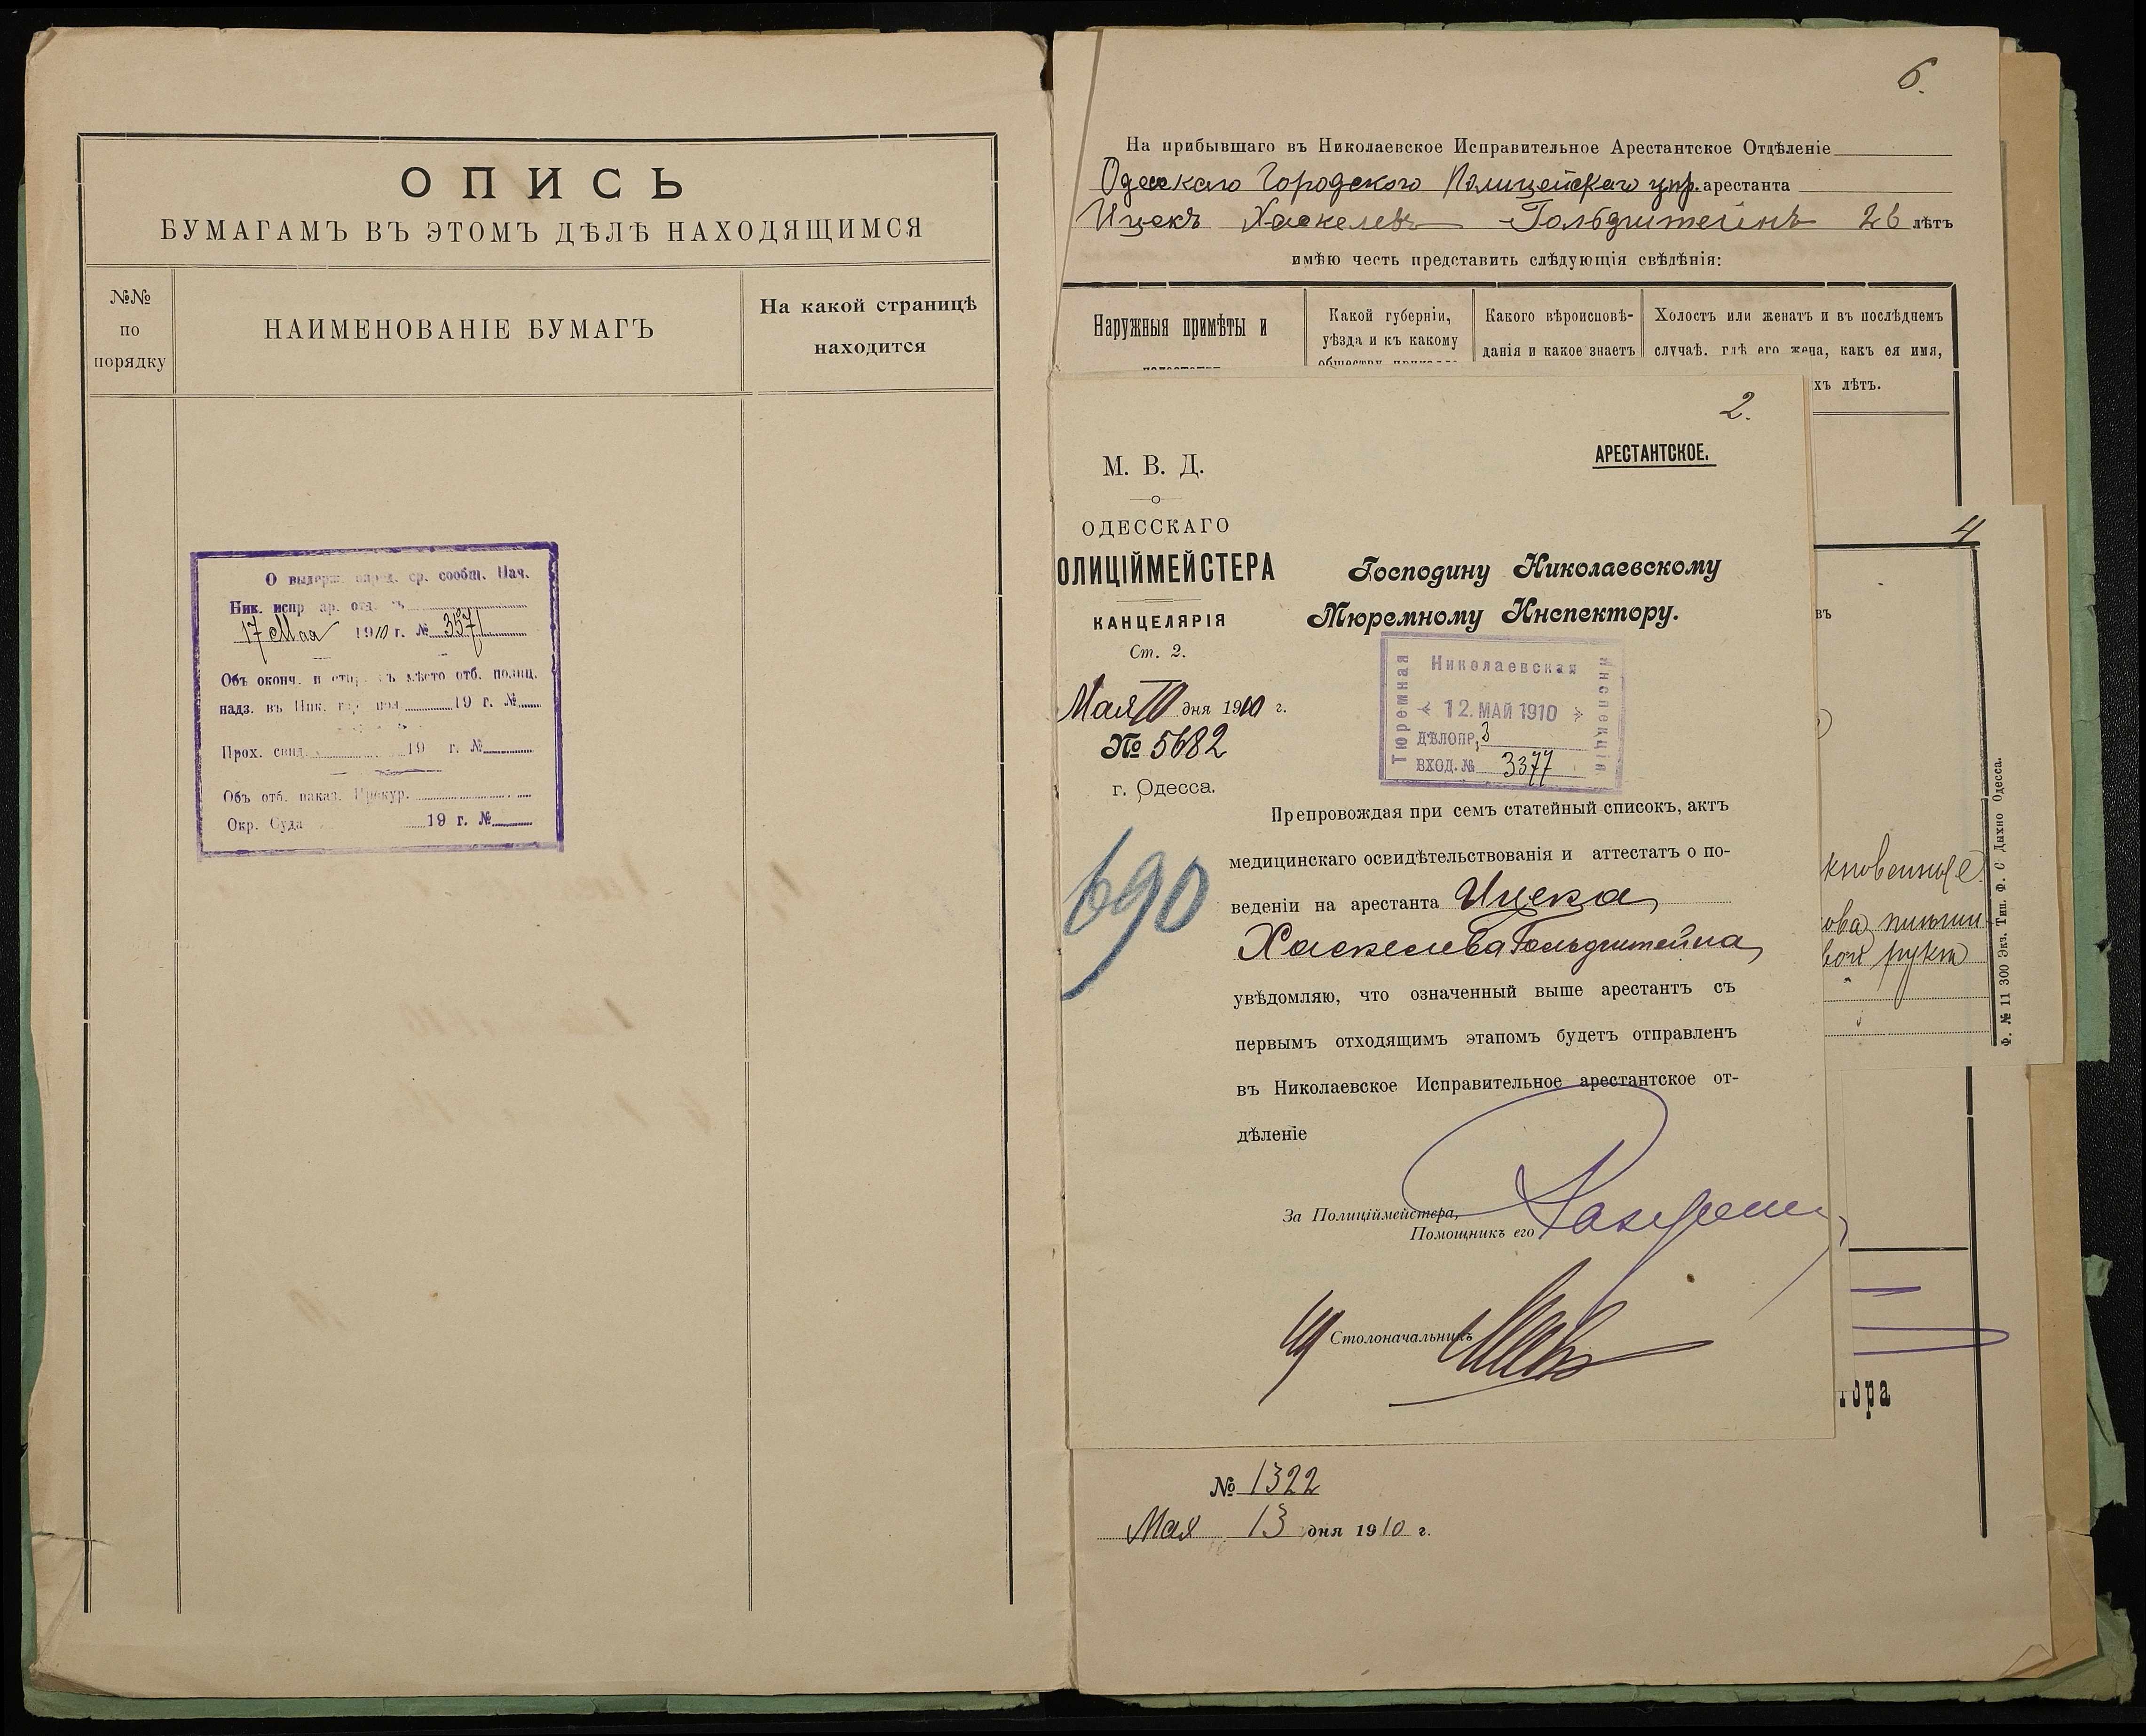 ОПИСЬ
БУМАГАМЪ ВЪ ЭТОМЪ ДѢЛѢ НАХОДЯЩИМСЯ
№№
по
порядку
НАИМЕНОВАНІЕ БУМАГЪ
На какой страницѣ
находится
О выдерж. ср. сообщ. Нач.
Ник. испр ар. отд.
17 Мая 1910 г. № 3571
Объ оконч. и мѣсто отб. полиц.
надз. въ Ник. 19 г. №
Прох. свид. 19 г. №
Объ отб. наказ. Прокур.
Окр. Суда 19 г. №
6.
На прибывшаго въ Николаевское Исправительное Арестантское Отдѣленіе
Одесскаго Городского Полицейскаго упр. арестанта
Ицекъ Хаскелевъ Гольдштейнъ 26 лѣтъ
имѣю честь представить слѣдующія свѣдѣнія:
Наружныя примѣты и
Какой губерніи,
уѣзда и къ какому
обществу
Какого вѣроисповѣ-
данія и какое знаетъ
Холостъ или женатъ и въ послѣднемъ
случаѣ, гдѣ его жена, какъ ея имя,
хъ лѣтъ.
2.
АРЕСТАНТСКОЕ.
М. В. Д.
ОДЕССКАГО
ОЛИЦІЙМЕЙСТЕРА
КАНЦЕЛЯРІЯ
Ст. 2.
Мая 10 дня 1910 г.
№ 5682
г. Одесса.
690
Господину Николаевскому
Тюремному Инспектору.
Николаевская
Тюремная
Инспекція
12. МАЙ 1910
ДѢЛОПР. 3
ВХОД. № 3377
Препровождая при семъ статейный списокъ, актъ
медицинскаго освидѣтельствованія и аттестатъ о по-
веденіи на арестанта Ицека
Хаскелева Гольдштейна,
увѣдомляю, что означенный выше арестантъ съ
первымъ отходящимъ этапомъ будетъ отправленъ
въ Николаевское Исправительное арестантское от-
дѣленіе
За Полиціймейстера,
Помощникъ его
Столоначальникъ
4
въ
кновенные
вой руки
Ф. № 11 300 Экз. Тип. Ф. С Дыхно Одесса.
тора
№ 1322
Мая 13 дня 1910 г.